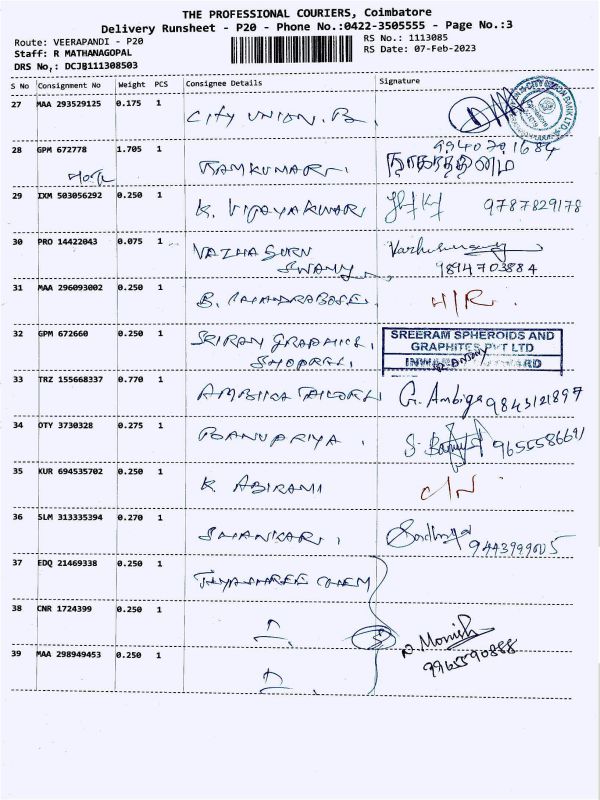 THE PROFESSIONAL COURIERS, Coimbatore
Delivery Runsheet - P20 - Phone No.:0422-3505555 - Page No.:3
Route: VEERAPANDI - P20
Staff: R MATHANAGOPAL
DRS No,: DCJB111308503
RS No.: 1113085
RS Date: 07-Feb-2023
S No Consignment No Weight PCS Consignee Details Signature
27 MAA 293529125 0.175 1 CITY UNION. B.
28 GPM 672778 1.705 1 RAMKUMAR.
29 IXM 503056292 0.250 1 K. VIJAYAKUMAR 9787829178
30 PRO 14422043 0.075 1 VAZHA GURU
SWAMY 9894703884
31 MAA 296093002 0.250 1 B. CHANDRABOSE. H/R.
32 GPM 672660 0.250 1 SRIRAM GRAPHICS,
SREERAM SPHEROIDS AND
GRAPHITES PVT LTD
33 TRZ 155668337 0.770 1 AMBIKA TAILORS G. Ambiga 9843121897
34 OTY 3730328 0.275 1 BANUPRIYA. 9655586691
35 KUR 694535702 0.250 1 K. ABIRAMI C/N
36 SLM 313335394 0.270 1 SHANKARI,
37 EDQ 21469338 0.250 1 JAYASHREE CHEM
38 CNR 1724399 0.250 1
39 MAA 298949453 0.250 1 N. Monish
9965590888